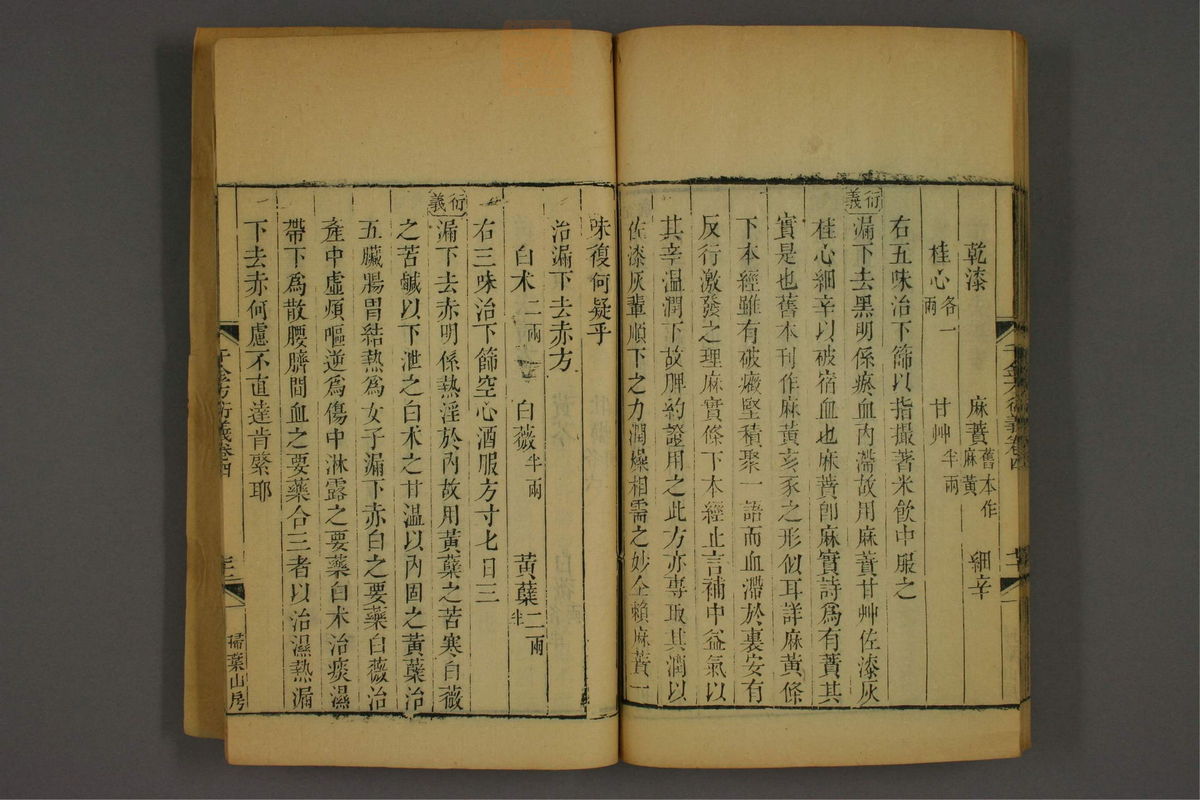 乾漆 麻蕡舊本作麻黃 細辛
桂心各一兩 甘艸半兩
右五味治下篩以指撮著米飲中服之
衍義
漏下去黑明係瘀血內滯故用麻蕡甘艸佐漆灰
桂心細辛以破宿血也麻蕡卽麻實詩爲有蕡其
實是也舊本刊作麻黃亥豕之形似耳詳麻黃條
下本經雖有破癥堅積聚一語而血滯於裏安有
反行激發之理麻實條下本經止言補中益氣以
其辛溫潤下故脾約證用之此方亦專取其潤以
佐漆灰輩順下之力潤燥相需之妙全賴麻蕡一
千金方衍義卷四
味復何疑乎
治漏下去赤方
白术二兩 白薇半兩 黃蘗二兩半
右三味治下篩空心酒服方寸匕日三
衍義
漏下去赤明係熱淫於內故用黃蘗之苦寒白薇
之苦鹹以下泄之白术之甘溫以內固之黃蘗治
五臟腸胃結熱爲女子漏下赤白之要藥白薇治
產中虛煩嘔逆爲傷中淋露之要藥白术治痰濕
帶下爲散腰臍間血之要藥合三者以治濕熱漏
下去赤何慮不直達肯綮耶
千金方衍義卷四
掃葉山房